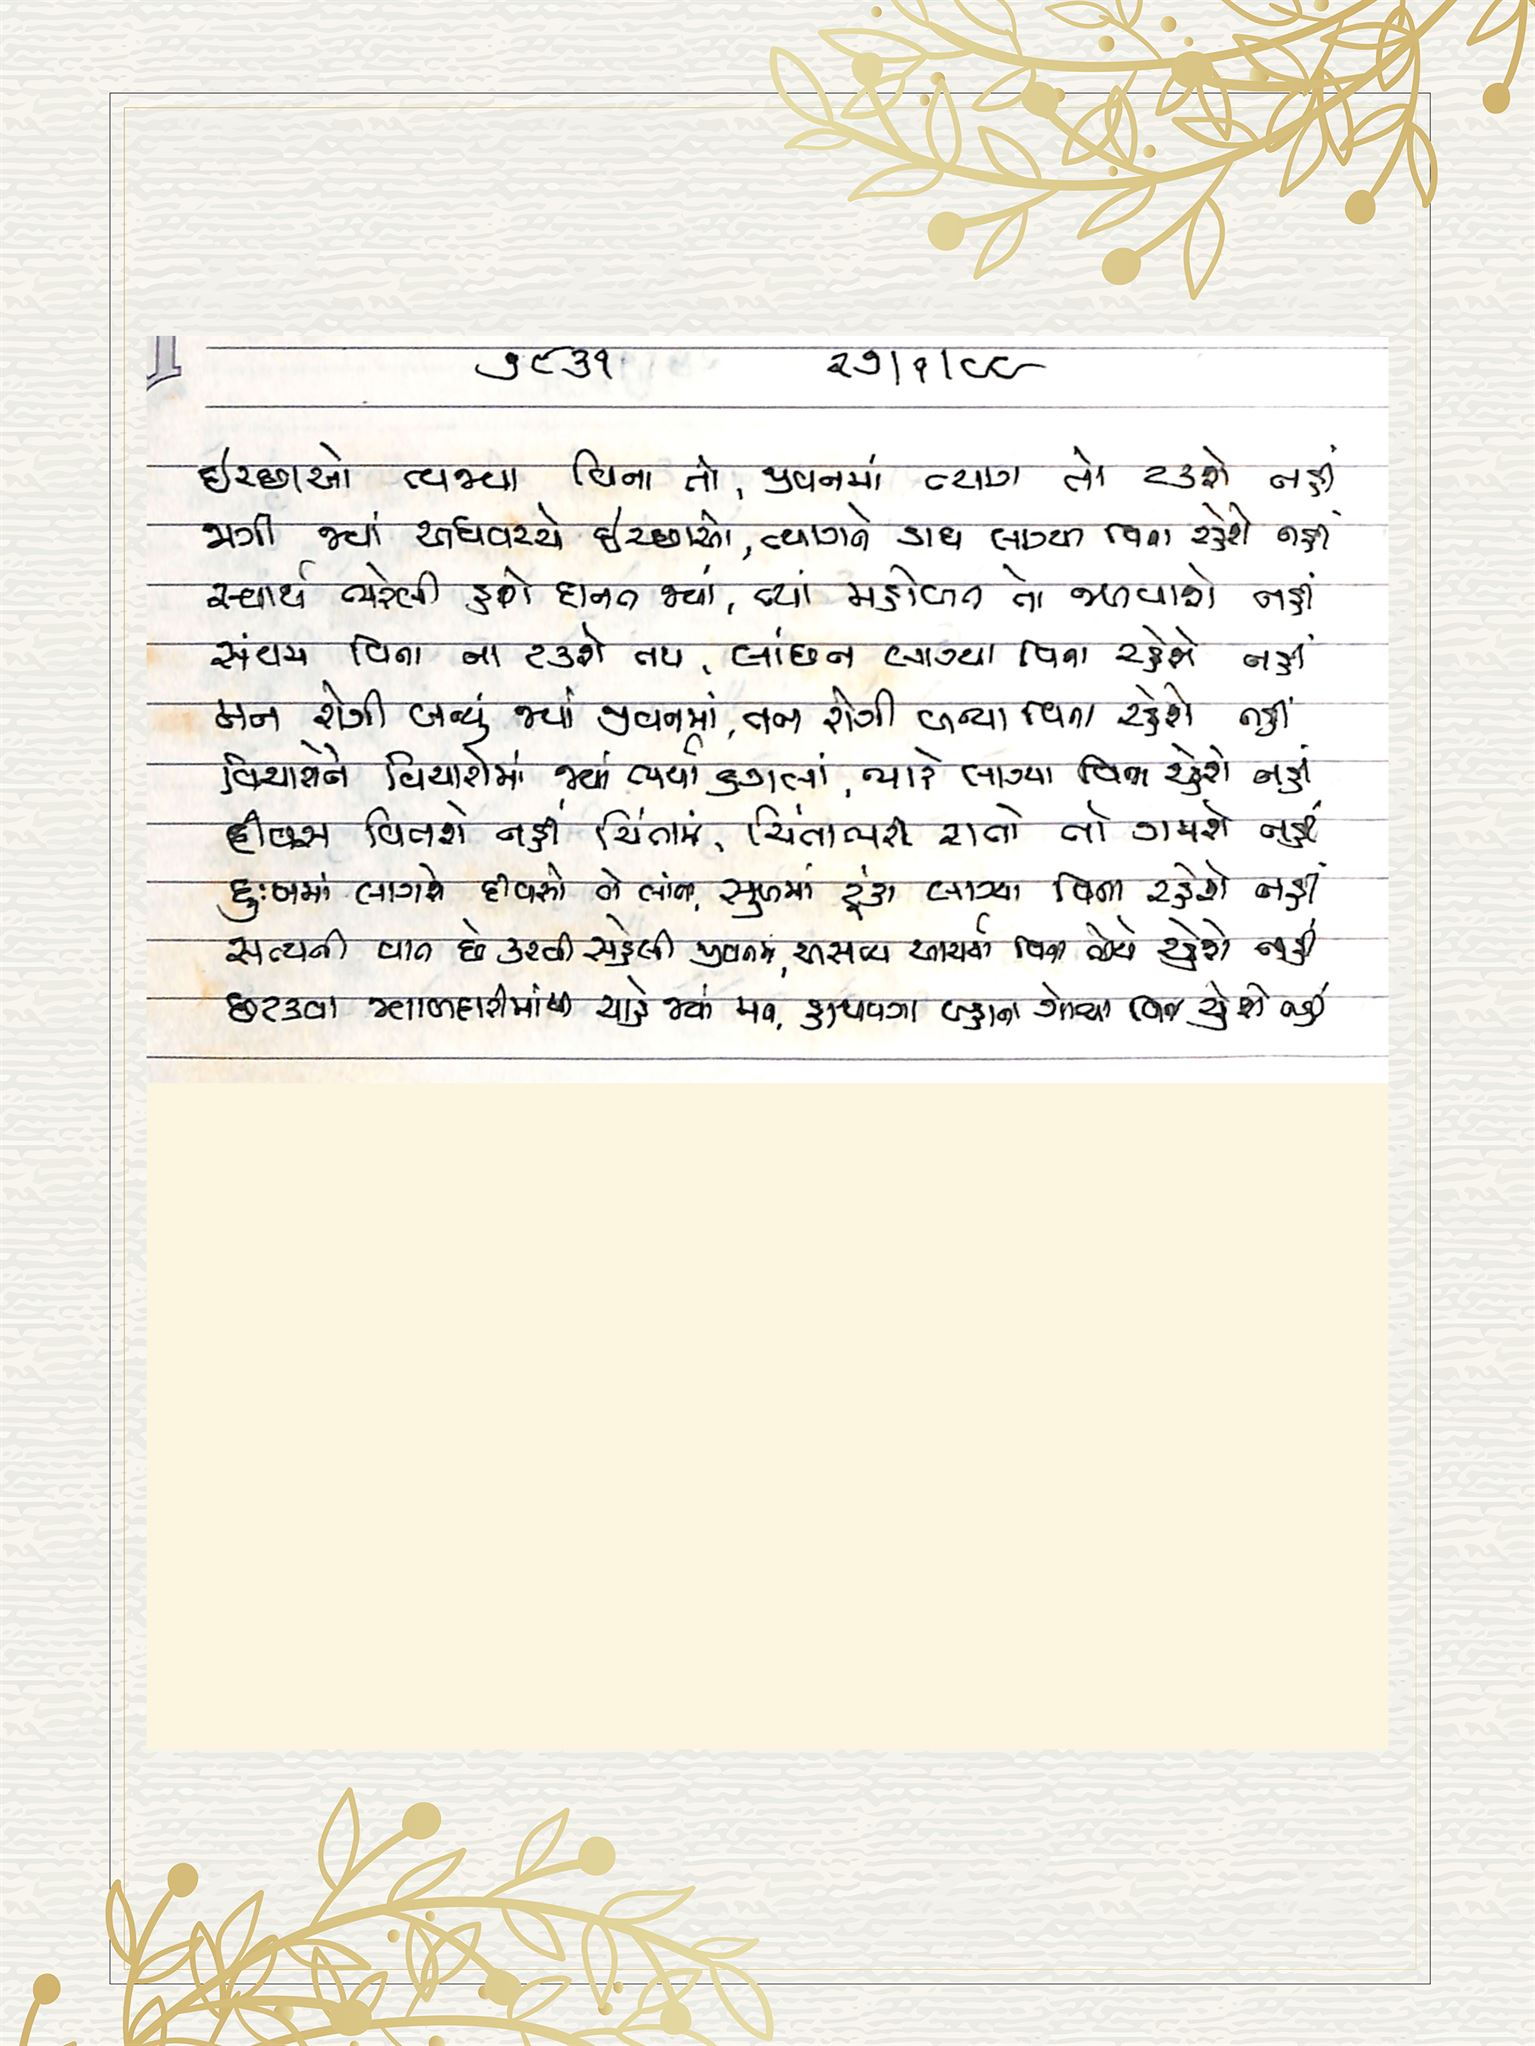 ૭૮૩૧ ૨૭/૧/૯૯
ઇચ્છાઓ ત્યજ્યા વિના તો, જીવનમાં ત્યાગ તો ટકશે નહીં
જાગી જ્યાં અધવચ્ચે ઇચ્છાઓ, ત્યાગને ડાઘ લાગ્યા વિના રહેશે નહીં
સ્વાર્થ ભરેલી હશે દાનત જ્યાં, ત્યાં મહોબત તો જળવાશે નહીં
સંયમ વિના ના ટકશે તપ, લાંછન લાગ્યા વિના રહેશે નહીં
મન રોગી બન્યું જ્યાં જીવનમાં, તન રોગી બન્યા વિના રહેશે નહીં
વિચારોને વિચારોમાં જ્યાં ભર્યા ડગલાં, ભારે લાગ્યા વિના રહેશે નહીં
દીવસ વિતશે નહીં ચિંતામાં, ચિંતાભરી રાતો તો ગમશે નહીં
દુઃખમાં લાગશે દીવસો લાંબા, સુખમાં ટૂંકા લાગ્યા વિના રહેશે નહીં
સત્યની વાત છે કરવી સહેલી જીવનમાં, અસત્ય આચર્યા વિના રહેશે નહીં
છટકવા જવાબદારીમાંથી ચાહે જ્યાં મન, હાથવગા બહાના ગોત્યા વિના રહેશે નહીં